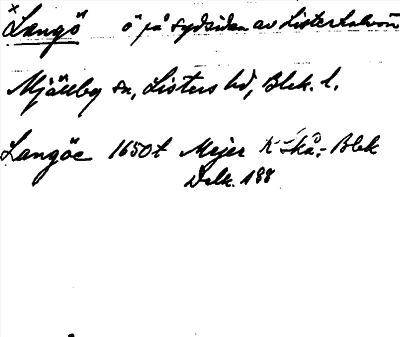 x Langö ö på sydsidan av Listerhalvön
Mjällby sn, Listers hd, Blek. l.
Langöe 1650t Mejer K Skå.- Blek
Delk. 188